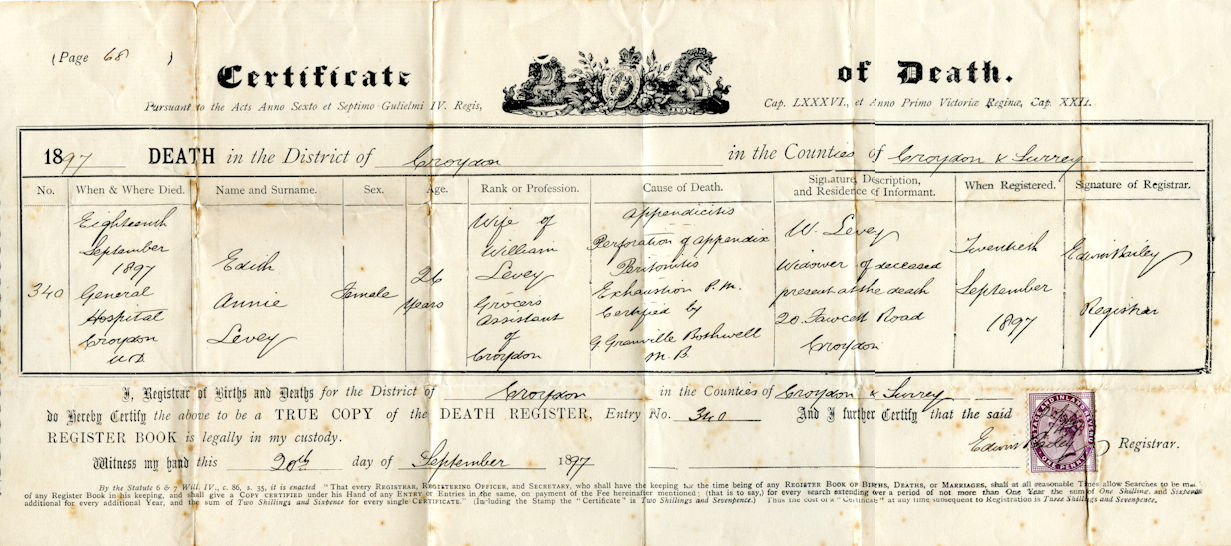 (Page 68)
Certificate of Death.
Pursuant to the Acts Anno Sexto et Septimo Gulielmi IV. Regis, Cap. LXXXVI., et Anno Primo Victoriæ Reginæ, Cap. XXII.
1897 DEATH in the District of Croydon in the Counties of Croydon & Surrey
No. When & Where Died. Name and Surname. Sex. Age. Rank or Profession. Cause of Death. Signature, Description, and Residence of Informant. When Registered. Signature of Registrar.
340
Eighteenth
September
1897
General
Hospital
Croydon
U.D.
Edith
Annie
Levey
Female
26
Years
Wife of
William
Levey
Grocers
Assistant
of
Croydon
Appendicitis
Perforation of appendix
Peritonitis
Exhaustion P.M.
Certified by
G Granville Bothwell
M.B.
W. Levey
Widower of deceased
present at the death
20. Fawcett Road
Croydon
Twentieth
September
1897
Edwin Bailey
Registrar
I, Registrar of Births and Deaths for the District of Croydon in the Counties of Croydon & Surrey
do Hereby Certify the above to be a TRUE COPY of the DEATH REGISTER, Entry No. 340 And I further Certify that the said
REGISTER BOOK is legally in my custody. Edwin Bailey Registrar.
Witness my hand this 20th day of September 1897
By the Statute 6 & 7 Will. IV., c. 86, s. 35, it is enacted "That every REGISTRAR, REGISTERING OFFICER, and SECRETARY, who shall have the keeping for the time being of any REGISTER BOOK OF BIRTHS, DEATHS, or MARRIAGES, shall at all reasonable Times allow Searches to be made
of any Register Book in his keeping, and shall give a COPY CERTIFIED under his Hand of any ENTRY or Entries in the same, on payment of the Fee hereinafter mentioned; (that is to say), for every search extending over a period of not more than One Year the sum of One Shilling, and Sixpence
additional for every additional Year, and the sum of Two Shillings and Sixpence for every single CERTIFICATE." (Including the Stamp the "Certificate" is Two Shillings and Sevenpence.) Thus the cost of a "Certificate" at any time subsequent to Registration is Three Shillings and Sevenpence.
POSTAGE AND INLAND REVENUE
ONE PENNY